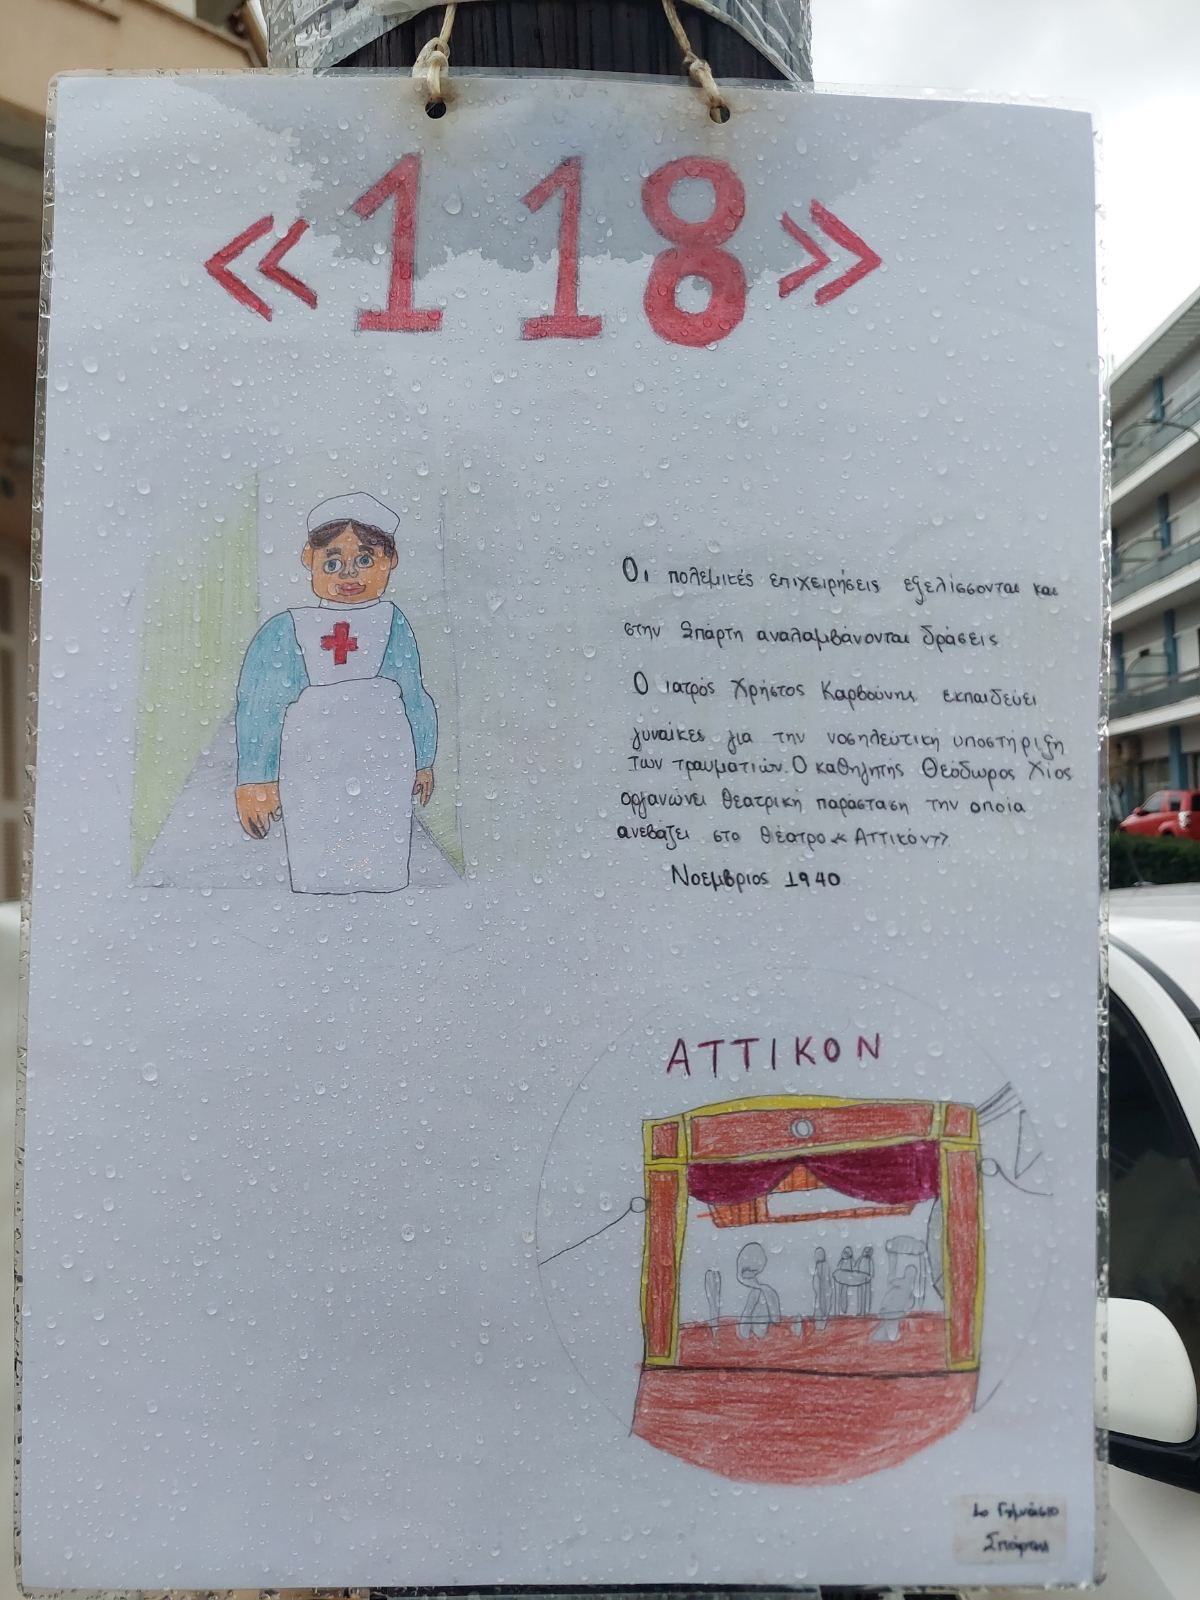 «118»
Οι πολεμικές επιχειρήσεις εξελίσσονται και
στην Σπάρτη αναλαμβάνονται δράσεις
Ο ιατρός Χρήστος Καρβούνης εκπαιδεύει
γυναίκες για την νοσηλευτική υποστήριξη
των τραυματιών. Ο καθηγητής Θεόδωρος Χίος
οργανώνει θεατρική παράσταση την οποία
ανεβάζει στο θέατρο «Αττικόν»
Νοέμβριος 1940
ΑΤΤΙΚΟΝ
1ο Γυμνάσιο
Σπάρτης